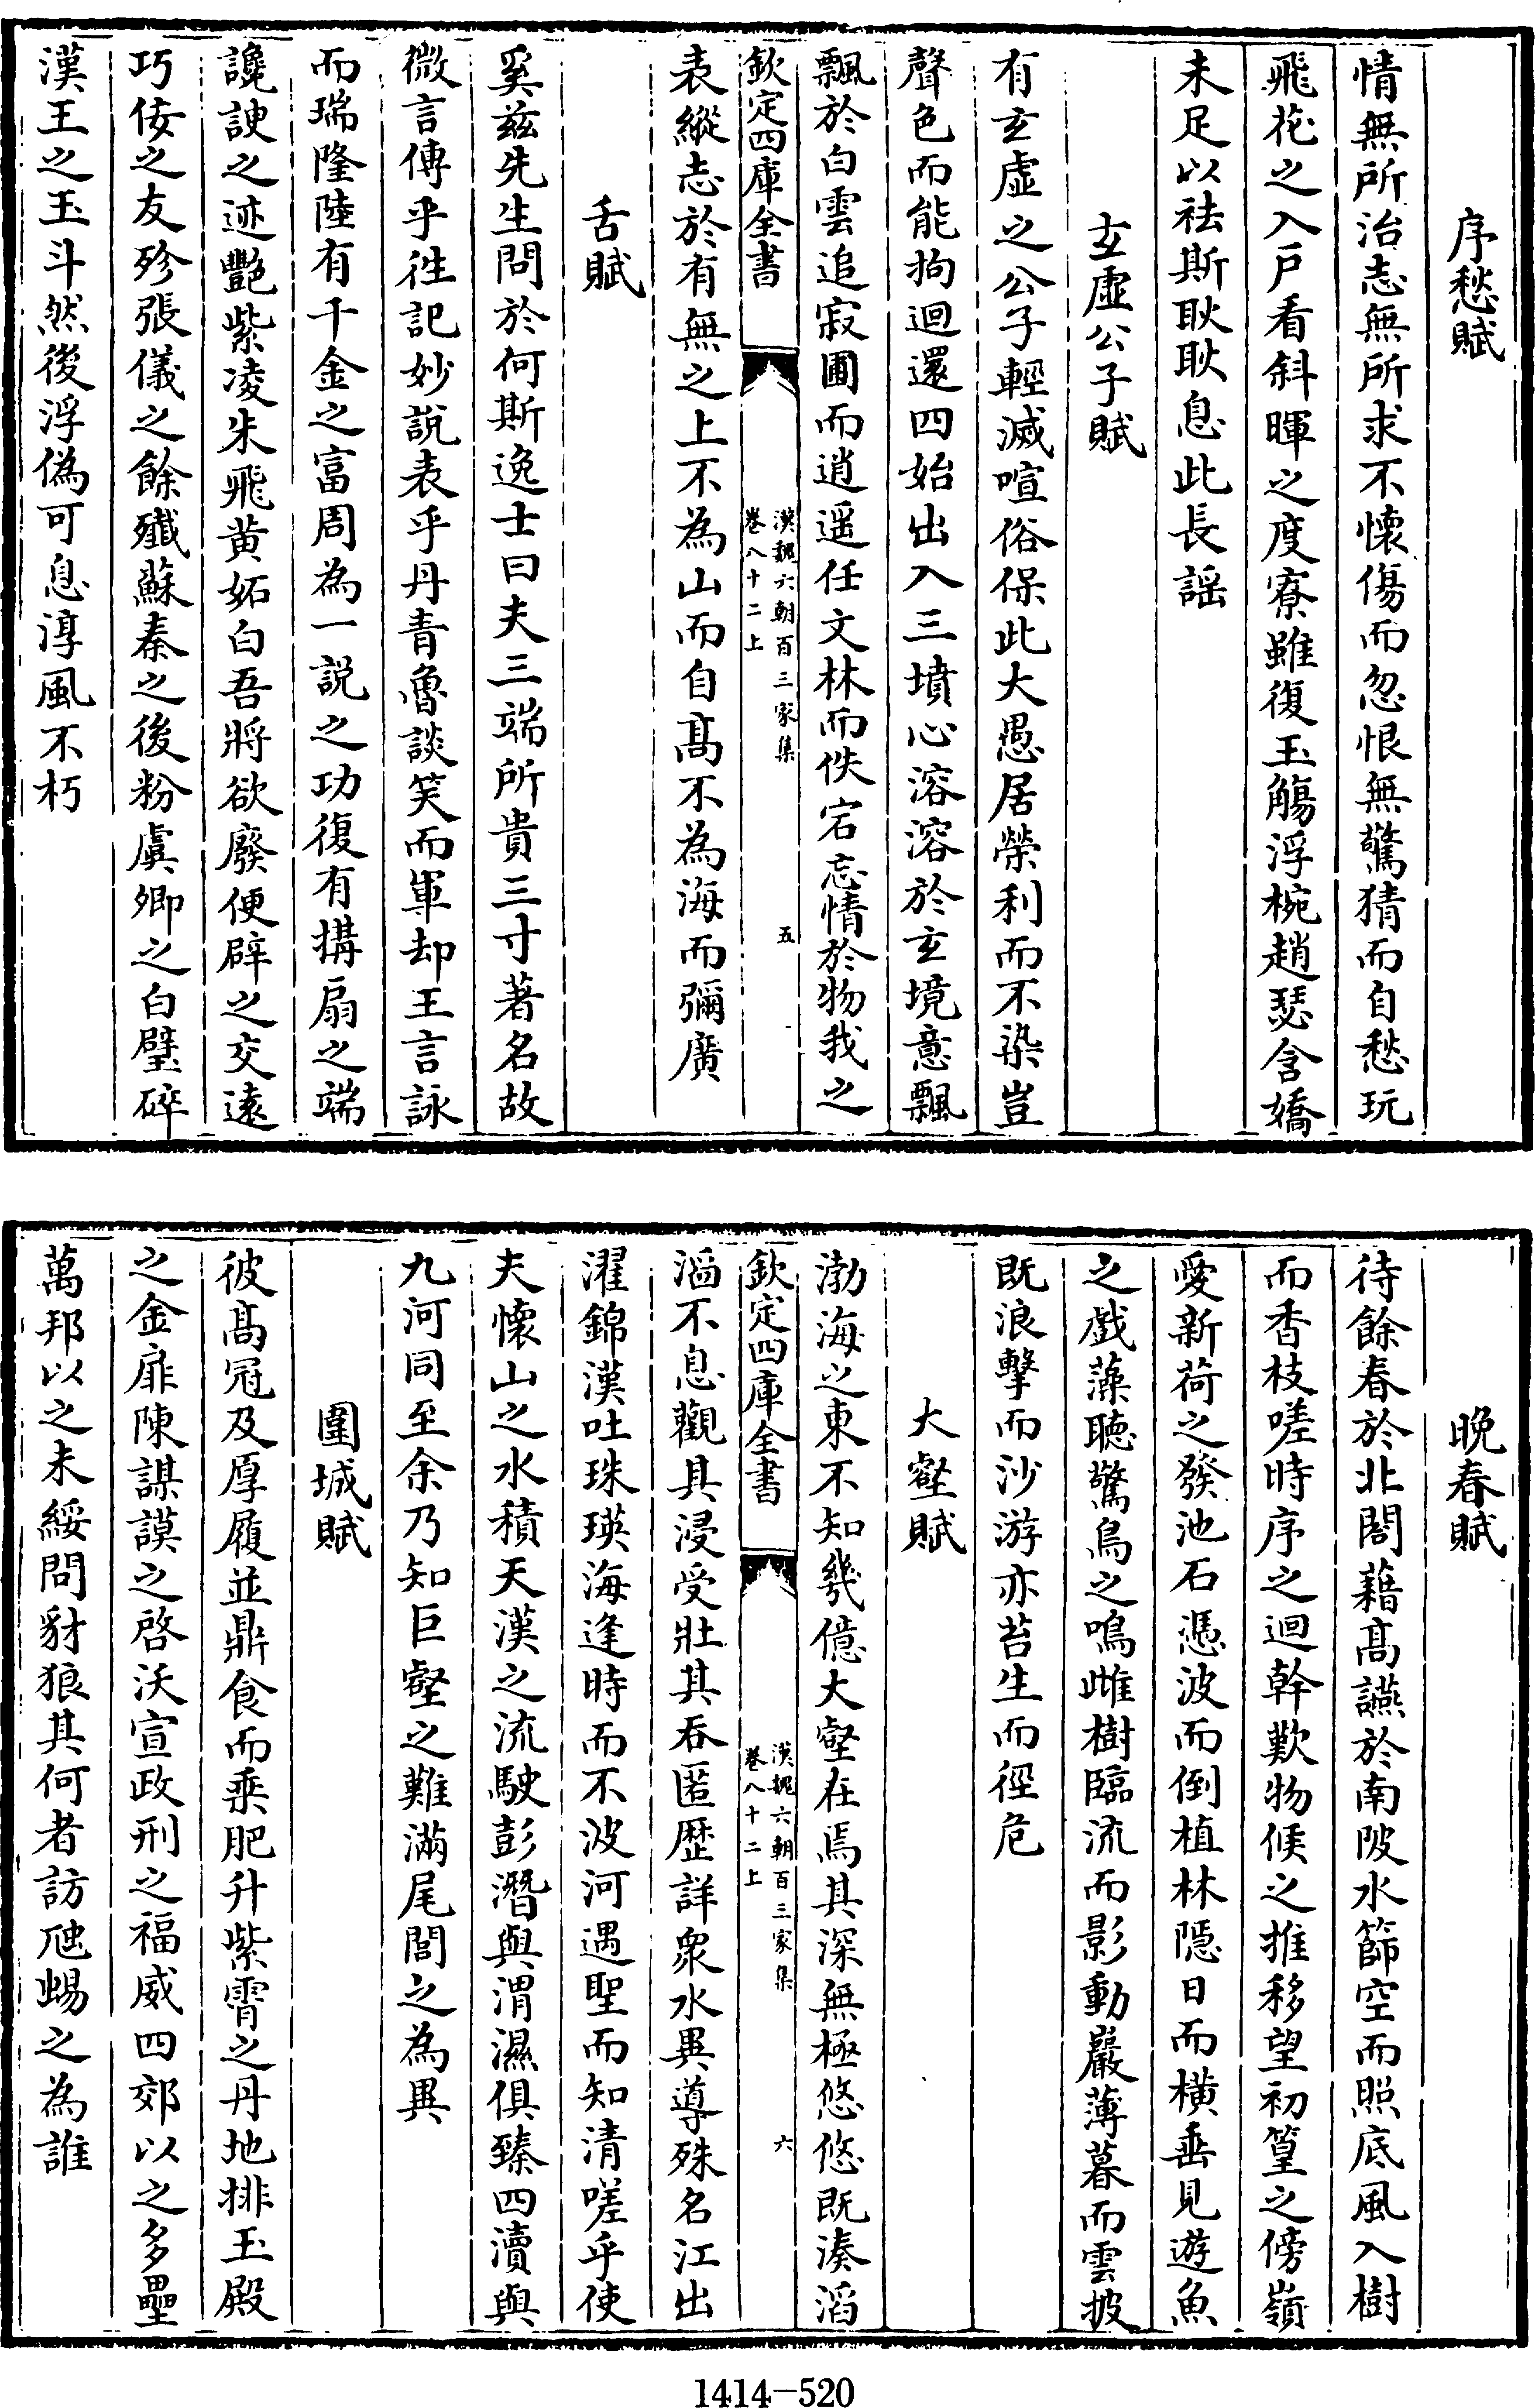 序愁賦
情無所治志無所求不懐傷而忽恨無驚猜而自愁玩
飛花之入戸看斜暉之度寮雖復玉觴浮椀趙瑟含嬌
未足以祛斯耿耿息此長謡
玄虚公子賦
有玄虚之公子輕滅喧俗保此大愚居榮利而不染豈
聲色而能拘迴還四始出入三墳心溶溶於玄境意飄
飄於白雲追寂圃而逍遥任文林而佚宕忘情於物我之
欽定四庫全書
漢魏六朝百三家集
卷八十二上
五
表縱志於有無之上不為山而自髙不為海而彌廣
舌賦
奚兹先生問於何斯逸士曰夫三端所貴三寸著名故
微言傳乎徃記妙說表乎丹青魯談笑而軍却王言詠
而瑞隆陸有千金之富周為一說之功復有搆扇之端
讒諛之迹艷紫凌朱飛黄妬白吾將欲廢便辟之交逺
巧佞之友殄張儀之餘殲蘇秦之後粉虞卿之白璧碎
漢王之玉斗然後浮偽可息淳風不朽
晚春賦
待餘春於北閣藉髙讌於南陂水篩空而照底風入樹
而香枝嗟時序之迴幹歎物候之推移望初篁之傍嶺
愛新荷之發池石憑波而倒植林隠日而横垂見遊魚
之戯藻聽驚鳥之鳴雌樹臨流而影動巖薄暮而雲披
既浪擊而沙游亦苔生而徑危
大壑賦
渤海之東不知幾億大壑在焉其深無極悠悠既湊滔
欽定四庫全書
漢魏六朝百三家集
卷八十二上
六
滔不息觀其浸受壯其吞匿歴詳衆水異導殊名江出
濯錦漢吐珠瑛海逢時而不波河遇聖而知清嗟乎使
夫懐山之水積天漢之流駛彭潛與渭濕俱臻四瀆與
九河同至余乃知巨壑之難滿尾閭之為異
圍城賦
彼髙冠及厚履並鼎食而乘肥升紫霄之丹地排玉殿
之金扉陳謀謨之啓沃宣政刑之福威四郊以之多壘
萬邦以之未綏問豺狼其何者訪虺蜴之為誰
1414-520